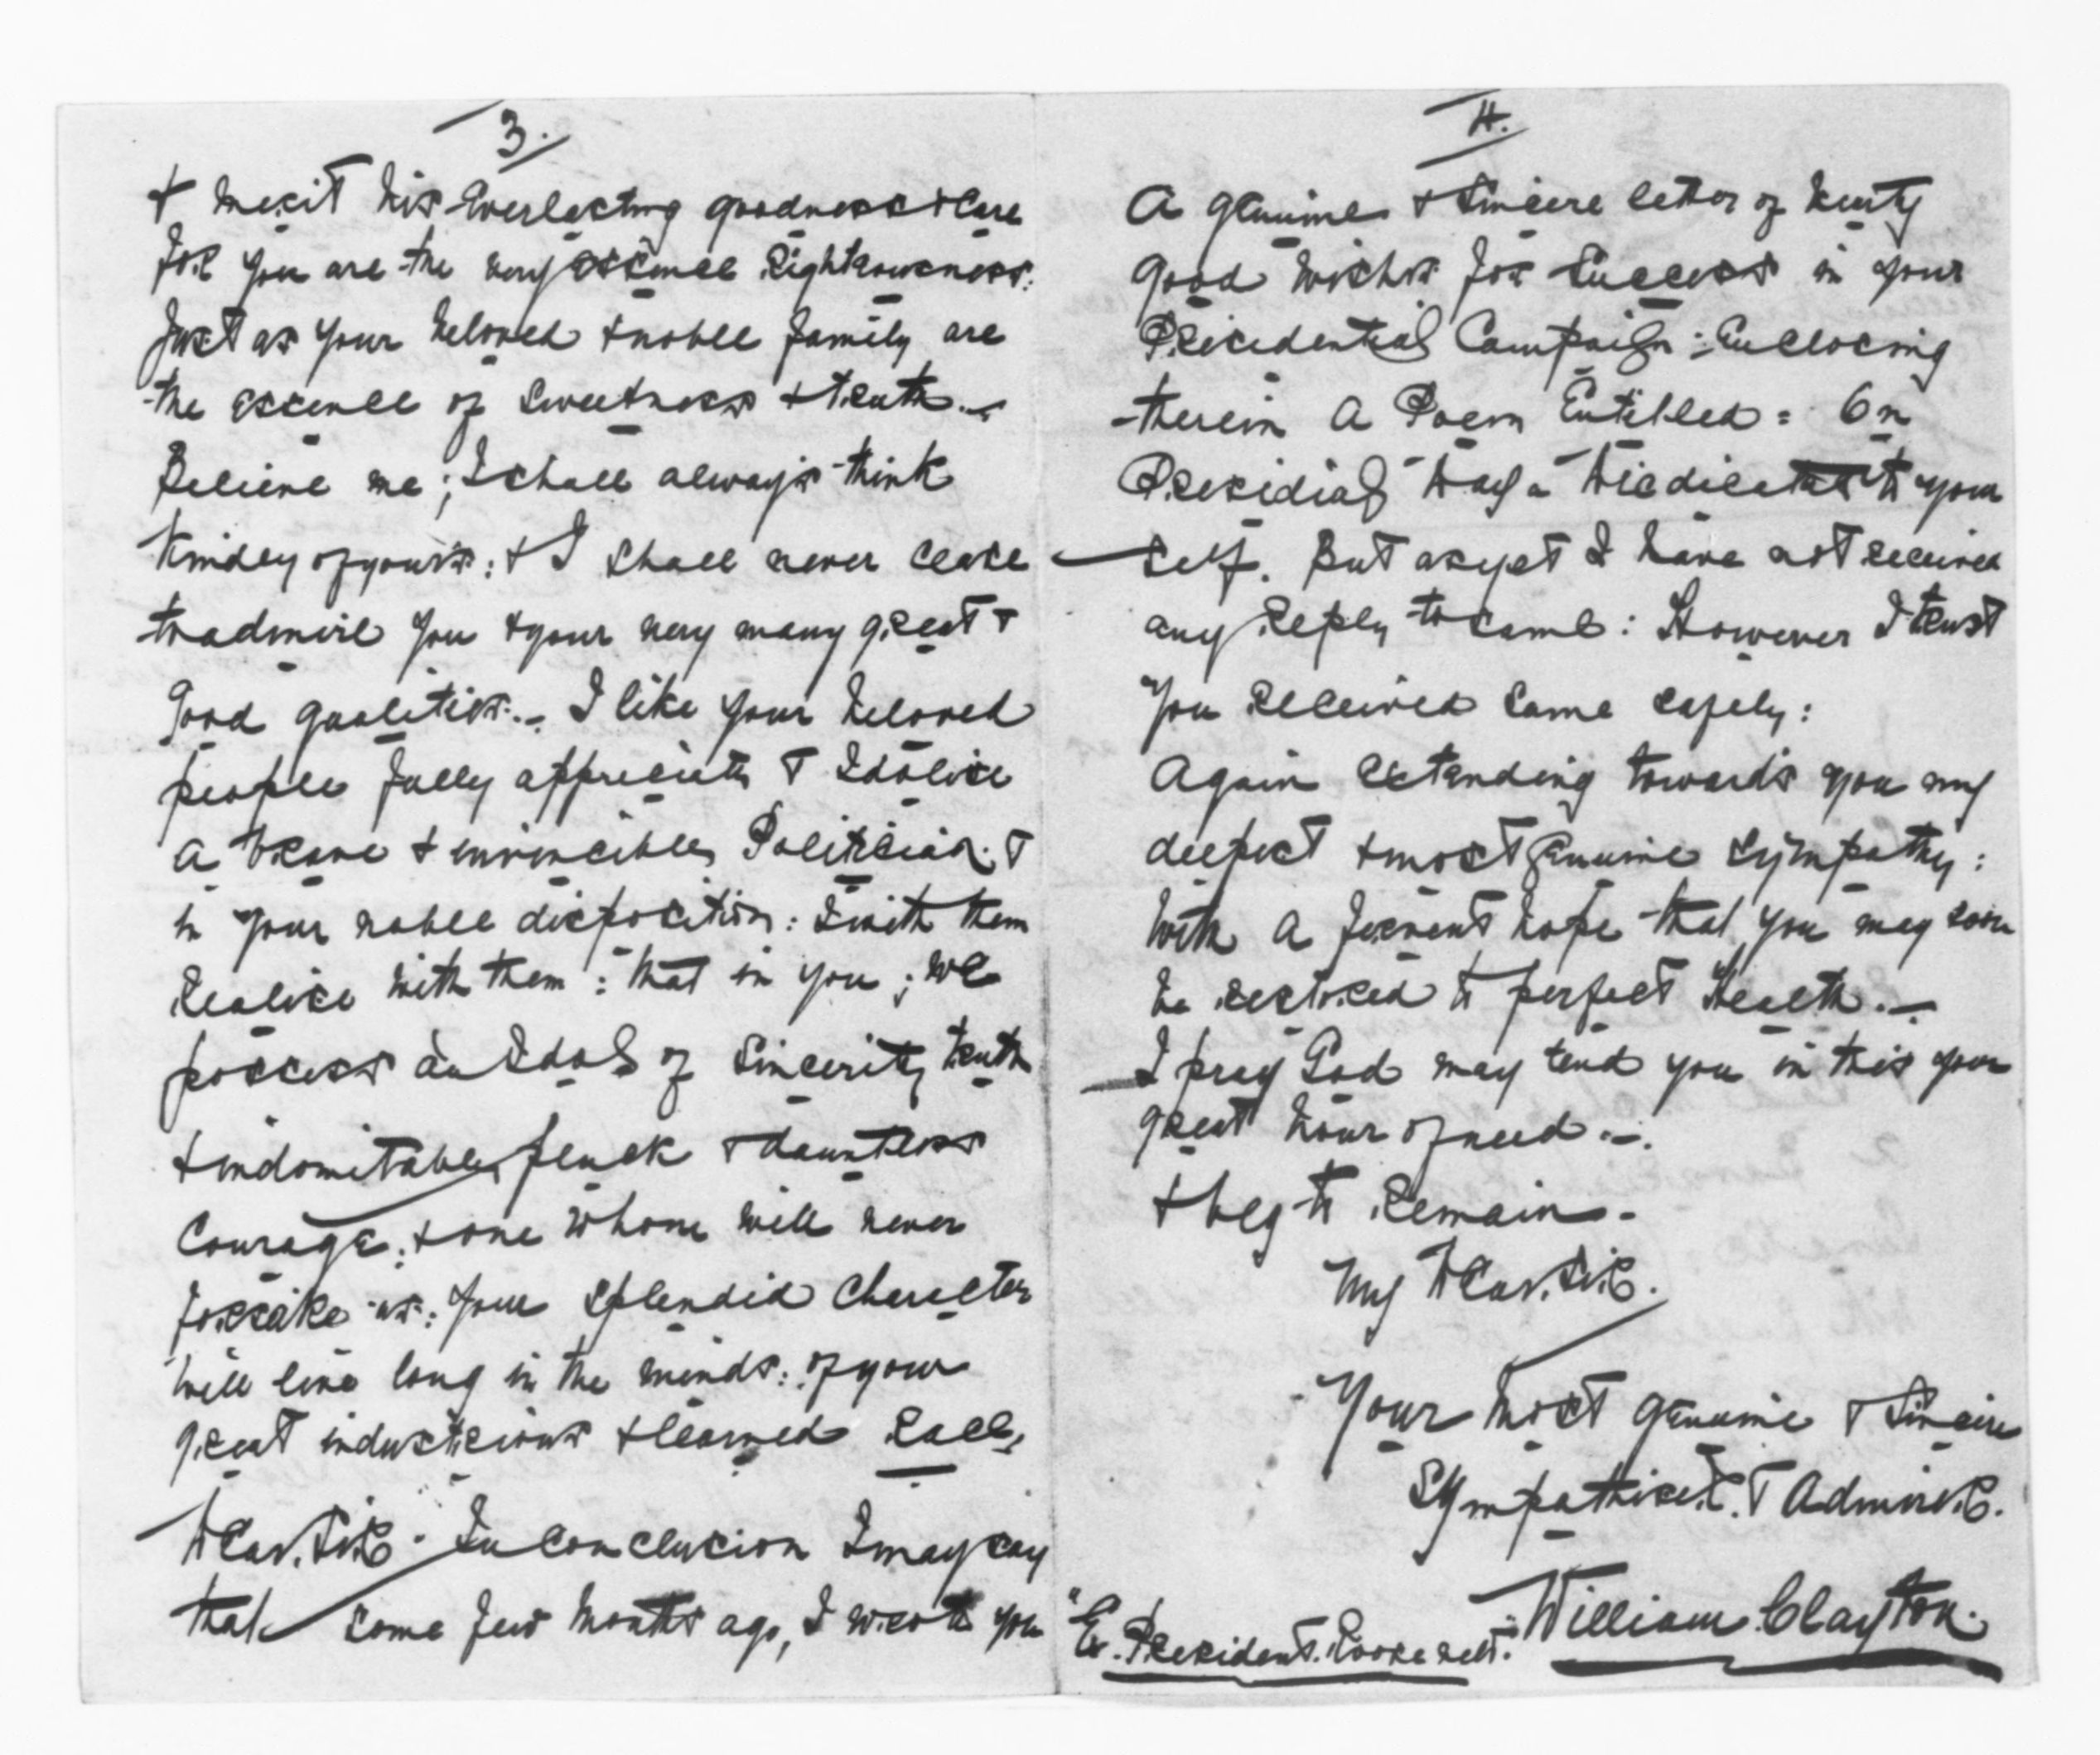 3.
& merit his Everlasting goodness & Care
For you are the very essence Righteousness:
Just as your beloved & noble family are
the essence of Sweetness & truth.-
Believe me; I shall always think
Kindly of yours: & I shall never cease
to admire you & your very many great &
Good qualities.- I like your beloved
people fully appreciate & Idolise
a brave & invincible Politician: &
in your noble disposition: I with them
Realise with them: that in you; we
possess an Idol of Sincerity truth
& indomitable pluck & dauntless
Courage: & one whom will never
forsake us: Your Splendid Character
will live long in the minds: of your
great industrious & learned Race,
Dear Sir. In Conclusion I may say
that some few Months ago, I wrote you
4.
A genuine & Sincere letter of hearty
Good wishes for Success in your
Presidential Campaign: Enclosing
therein a Poem Entitled = On
Presidial Day = Dedicated to your
Self. But as yet I have not received
any Reply to same: However I trust
You Received Same safely:
Again extending towards you my
deepest & most genuine Sympathy:
With a fervent hope that you may soon
be restored to perfect Health.-
I pray God may tend you in this your
great hour of need.-.
& beg to Remain.
My Dear. Sir.
Your Most genuine & Sincere
Sympathiser. & Admirer.
William Clayton.
"Ex. President. Roosevelt.